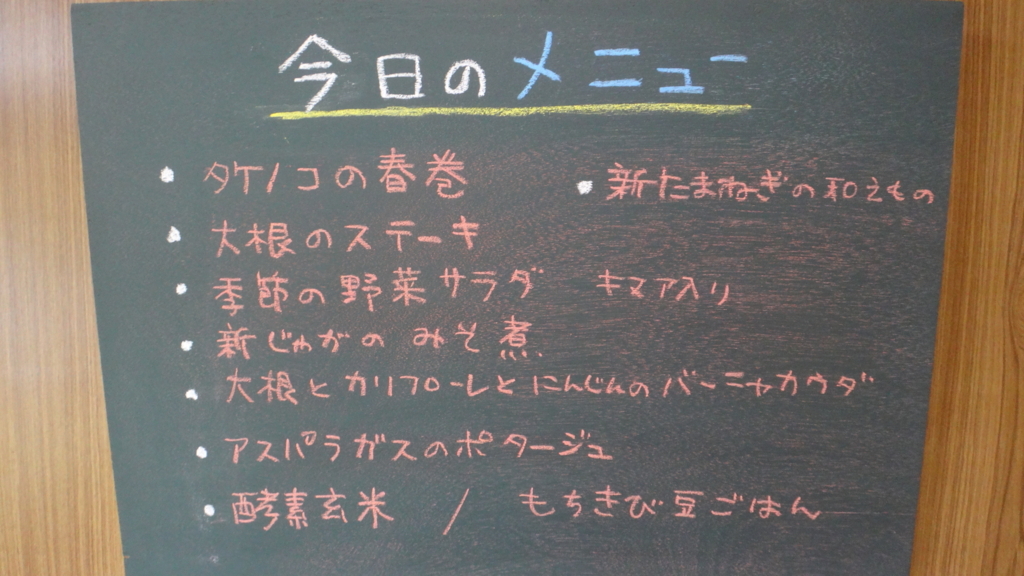 今日のメニュー
・タケノコの春巻
・新たまねぎの和えもの
・大根のステーキ
・季節の野菜サラダ キヌア入り
・新じゃがのみそ煮
・大根とカリフローレとにんじんのバーニャカウダ
・アスパラガスのポタージュ
・酵素玄米 / もちきび豆ごはん